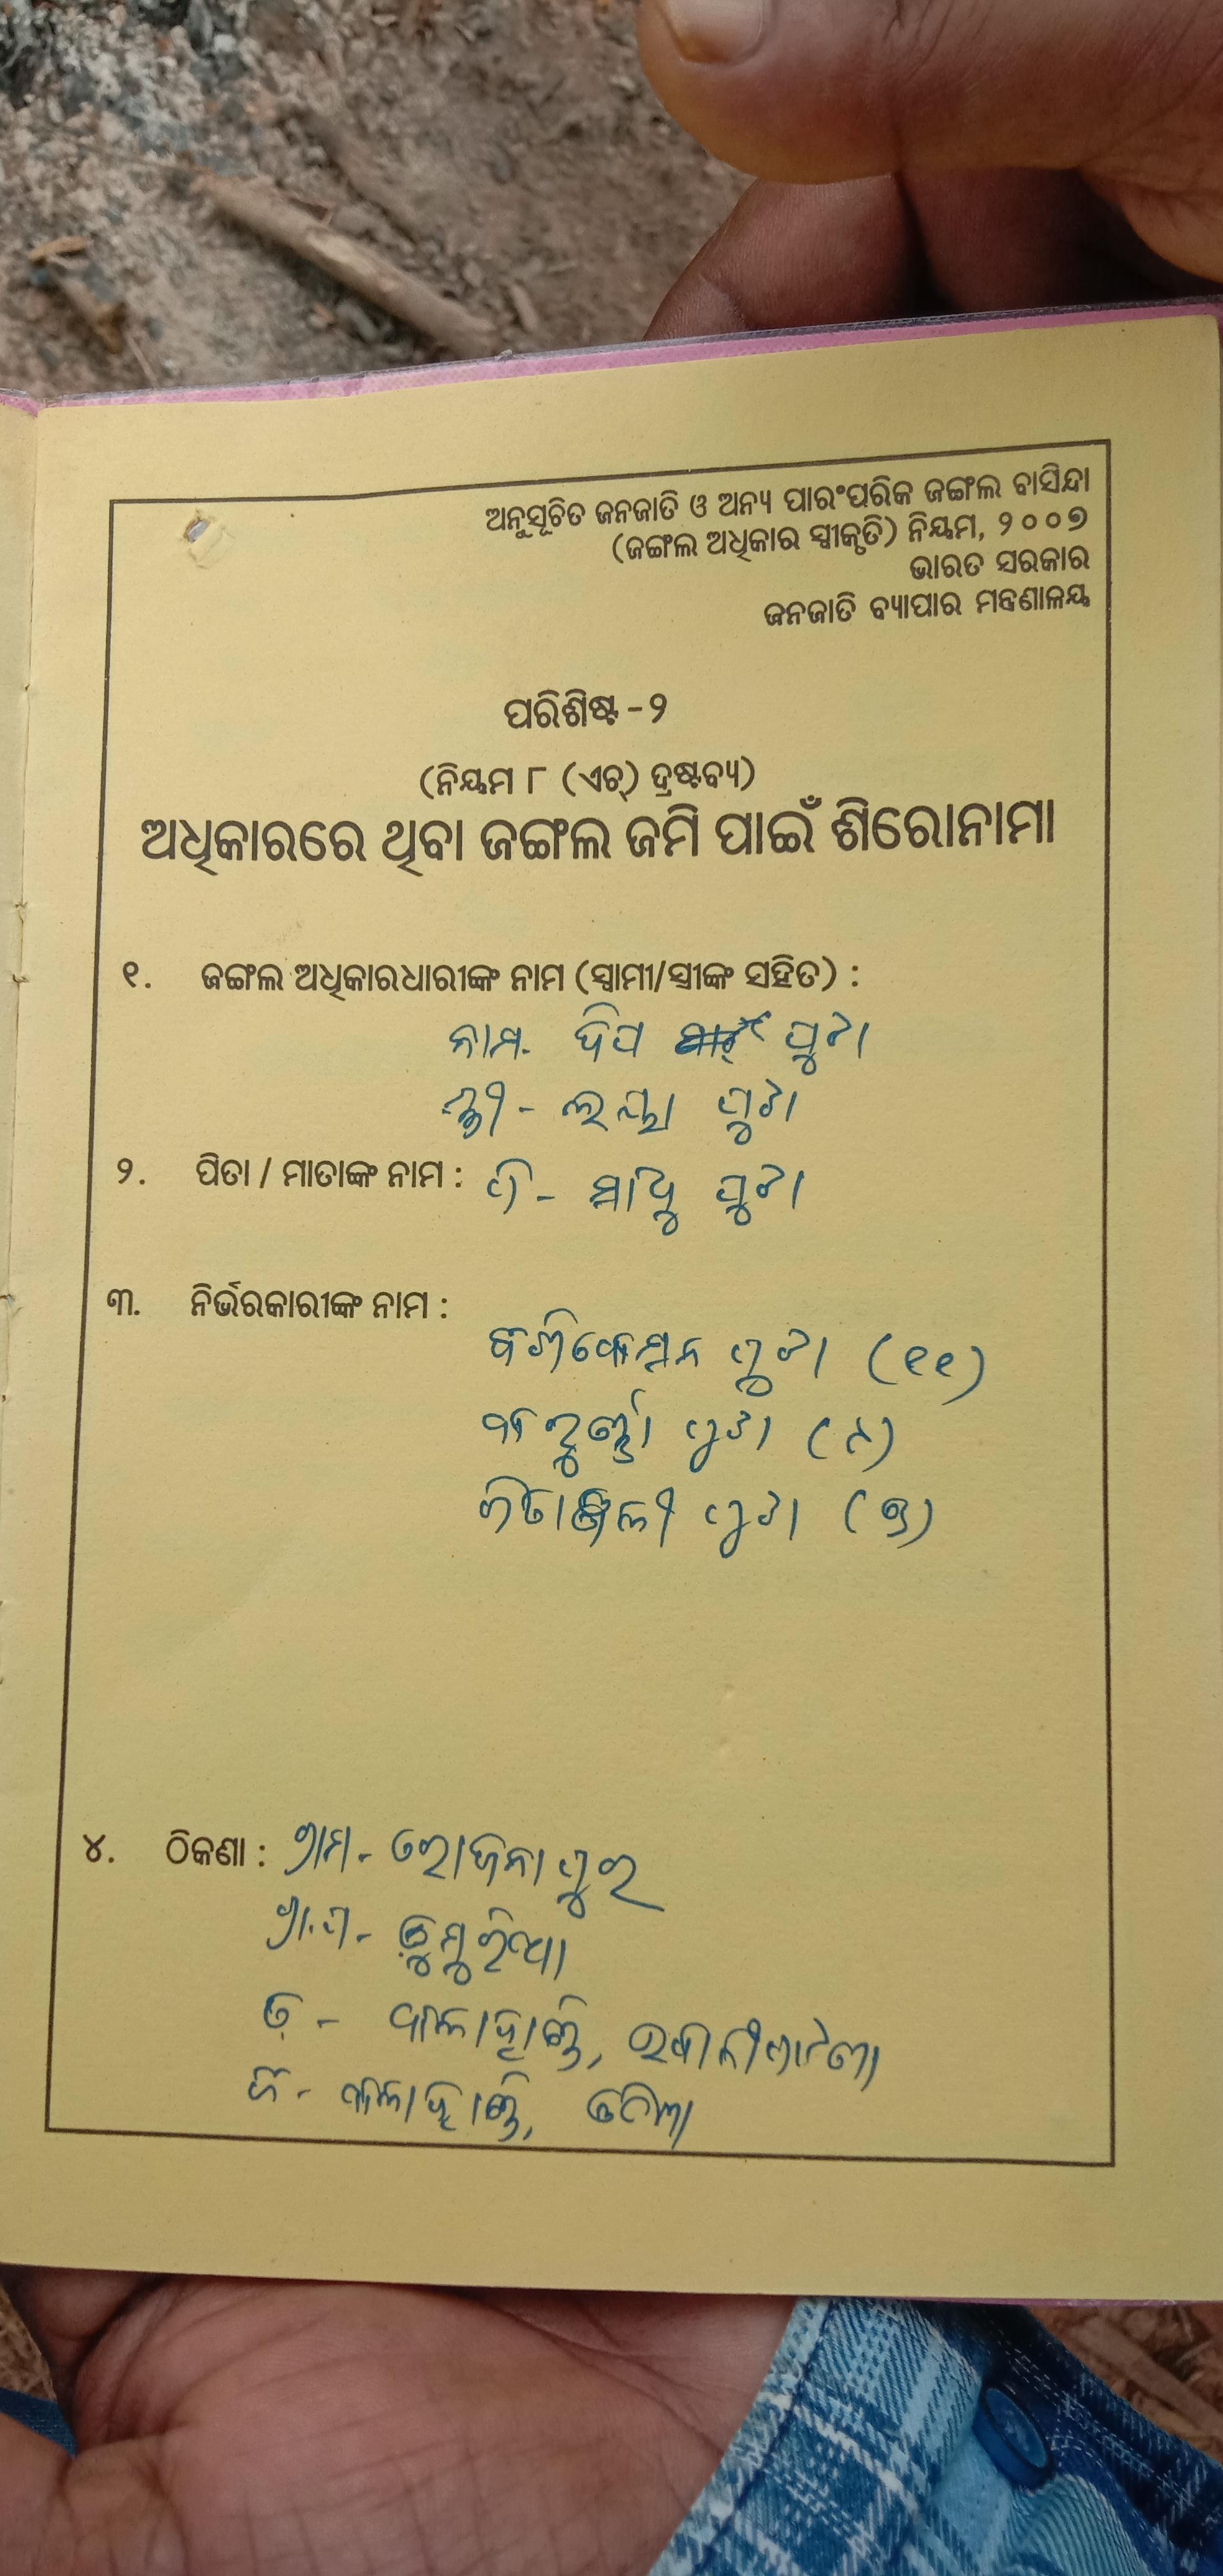 ଅନୁସୂଚିତ ଜନଜାତି ଓ ଅନ୍ୟ ପାରଂପରିକ ଜଙ୍ଗଲ ବାସିନ୍ଦା
(ଜଙ୍ଗଲ ଅଧିକାର ସ୍ୱୀକୃତି) ନିୟମ, ୨୦୦୭
ଭାରତ ସରକାର
ଜନଜାତି ବ୍ୟାପାର ମନ୍ତ୍ରଣାଳୟ
ପରିଶିଷ୍ଟ -୨
(ନିୟମ ୮ (ଏଚ୍) ଦ୍ରଷ୍ଟବ୍ୟ)
ଅଧିକାରରେ ଥିବା ଜଙ୍ଗଲ ଜମି ପାଇଁ ଶିରୋନାମା
୧. ଜଙ୍ଗଲ ଅଧିକାରଧାରୀଙ୍କ ନାମ (ସ୍ୱାମୀ/ସ୍ତ୍ରୀଙ୍କ ସହିତ) :
ନାମ. ଦିପ ପୁଟା
ସ୍ତ୍ରୀ - ପୁଟା
୨. ପିତା / ମାତାଙ୍କ ନାମ : ପି - ସାଧୁ ପୁଟା
୩. ନିର୍ଭରକାରୀଙ୍କ ନାମ :
ପୁଟା (୧୧)
ପୁଟା (୯)
ଗିତାଞ୍ଜଳୀ ପୁଟା (୭)
୪. ଠିକଣା : ଗ୍ରାମ -
ଗ୍ରା.ପ -
ତ - କଳାହାଣ୍ଡି,
ଜି - କଳାହାଣ୍ଡି, ଓଡିଶା